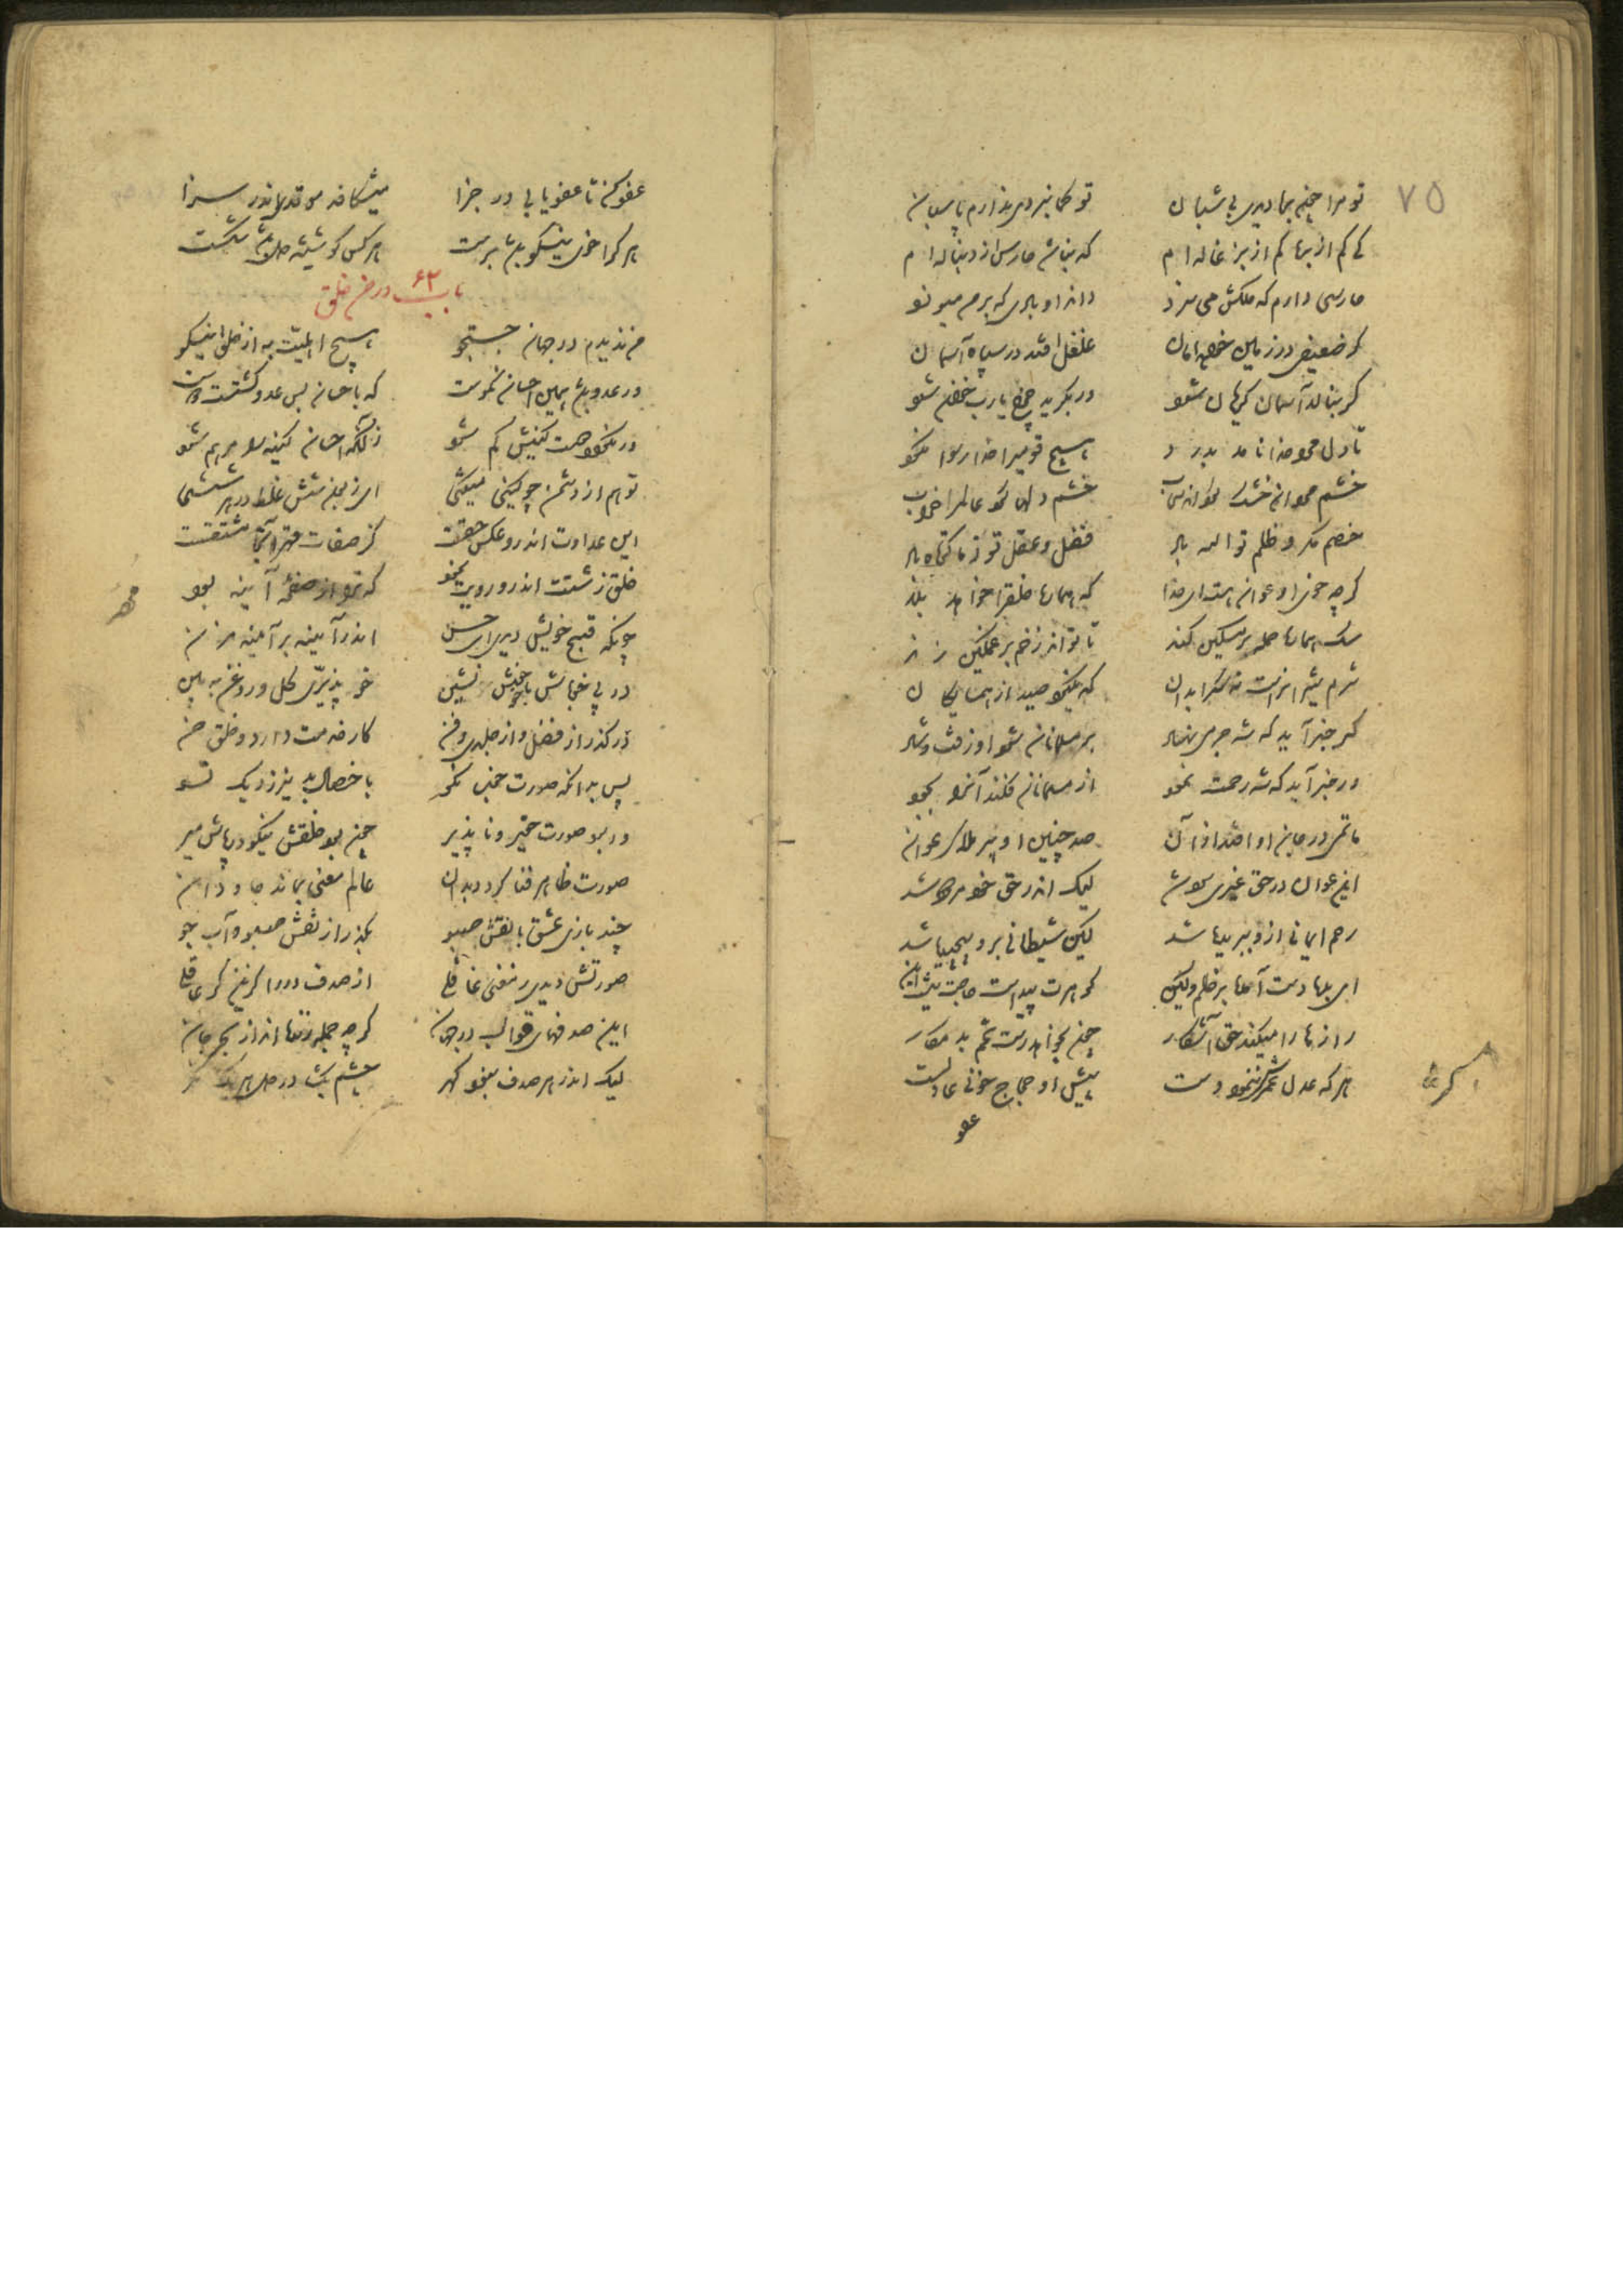 ۷۵
تو مرا چون بره دیدی بی شبان تو گمان بردی ندارم پاسبان
کی کم از بره کم از بزغاله ام که نباشد حارس از دنباله ام
حارسی دارم که ملکش می سزد داند او بادی که بر من می وزد
گر ضعیفی در زمین خواهد امان غلغل افتد در سپاه آسمان
گر بنالد آسمان گریان شود ور بگرید چرخ یارب خوان شود
تا دل مرد خدا نامد بدرد هیچ قومی را خدا رسوا نکرد
خشم مردان خشک گرداند سحاب خشم دلها کرد عالم را خراب
خصم مکر و ظلم تو الله باد فضل و عقل تو ز ما کوتاه باد
گرچه خوی او عوان هست ای خدا که
سگ هماره حمله بر مسکین کند تا تواند زخم بر مسکین زند
شرم شیران راست نه سگ را بدان که نگیرد صید از همسایگان
گر خبر آید که شه جرمی نهاد بر مسلمانان شود او زفت و شاد
ور خبر آید که شه رحمت نمود از مسلمانان فکند آن را بجود
ماتمی در جان او افتد از آن صد چنین ادبارها دارد عوان
این عوان در حق غیری سود شد لیک اندر حق خود مردود شد
رحم ایمانی ازو ببریده شد کین شیطانی برو پیچیده شد
رازها را میکند حق آشکار چون بخواهد رست تخم بد مکار
هر که عدل عمرش ننمود دست پیش او حجاج خونی عادلست
عفو
عفو کن تا عفو یابی در جزا میشکافد مو قدر اندر سزا
هر که را خوی نیکو باشد برست هر کسی کو شیشه دل باشد شکست
باب ۶۲ در حسن خلق
من ندیدم در جهان جستجو هیچ اهلیت به از خلق نیکو
در عدو باشد همین احسان نکوست که باحسان بس عدو گشتست دوست
ور نگردد دوست کینش کم شود زآنکه احسان کینه را مرهم شود
این عداوت اندرو عکس حقست کز صفات قهر آنجا مشتقست
خلق زشتت اندرو رویت نمود که ترا از صفحه آیینه بود
چونکه قبح خویش دیدی ای حسن اندر آیینه بر آیینه مزن
در پی خو باش و با خوش خو نشین خو پذیری گل و روغن ببین
درگذر از فضل و از جلدی و فن کار خدمت دارد و خلق حسن
پس بدانکه صورت خوب نکو با خصال بد نیرزد یک تسو
ور بود صورت حقیر و ناپذیر چون بود خلقش نیکو در پاش میر
صورت ظاهر فنا گردد بدان عالم معنی بماند جاودان
چند بازی عشق با نقش سبو بگذر از نقش سبو و آب جو
صورتش دیدی ز معنی غافلی از صدف در را گزین گر عاقلی
این صدفهای قوالب در جهان گرچه جمله زنده اند از بحر جان
لیک اندر هر صدف نبود گهر چشم بگشا در دل هر یک نگر